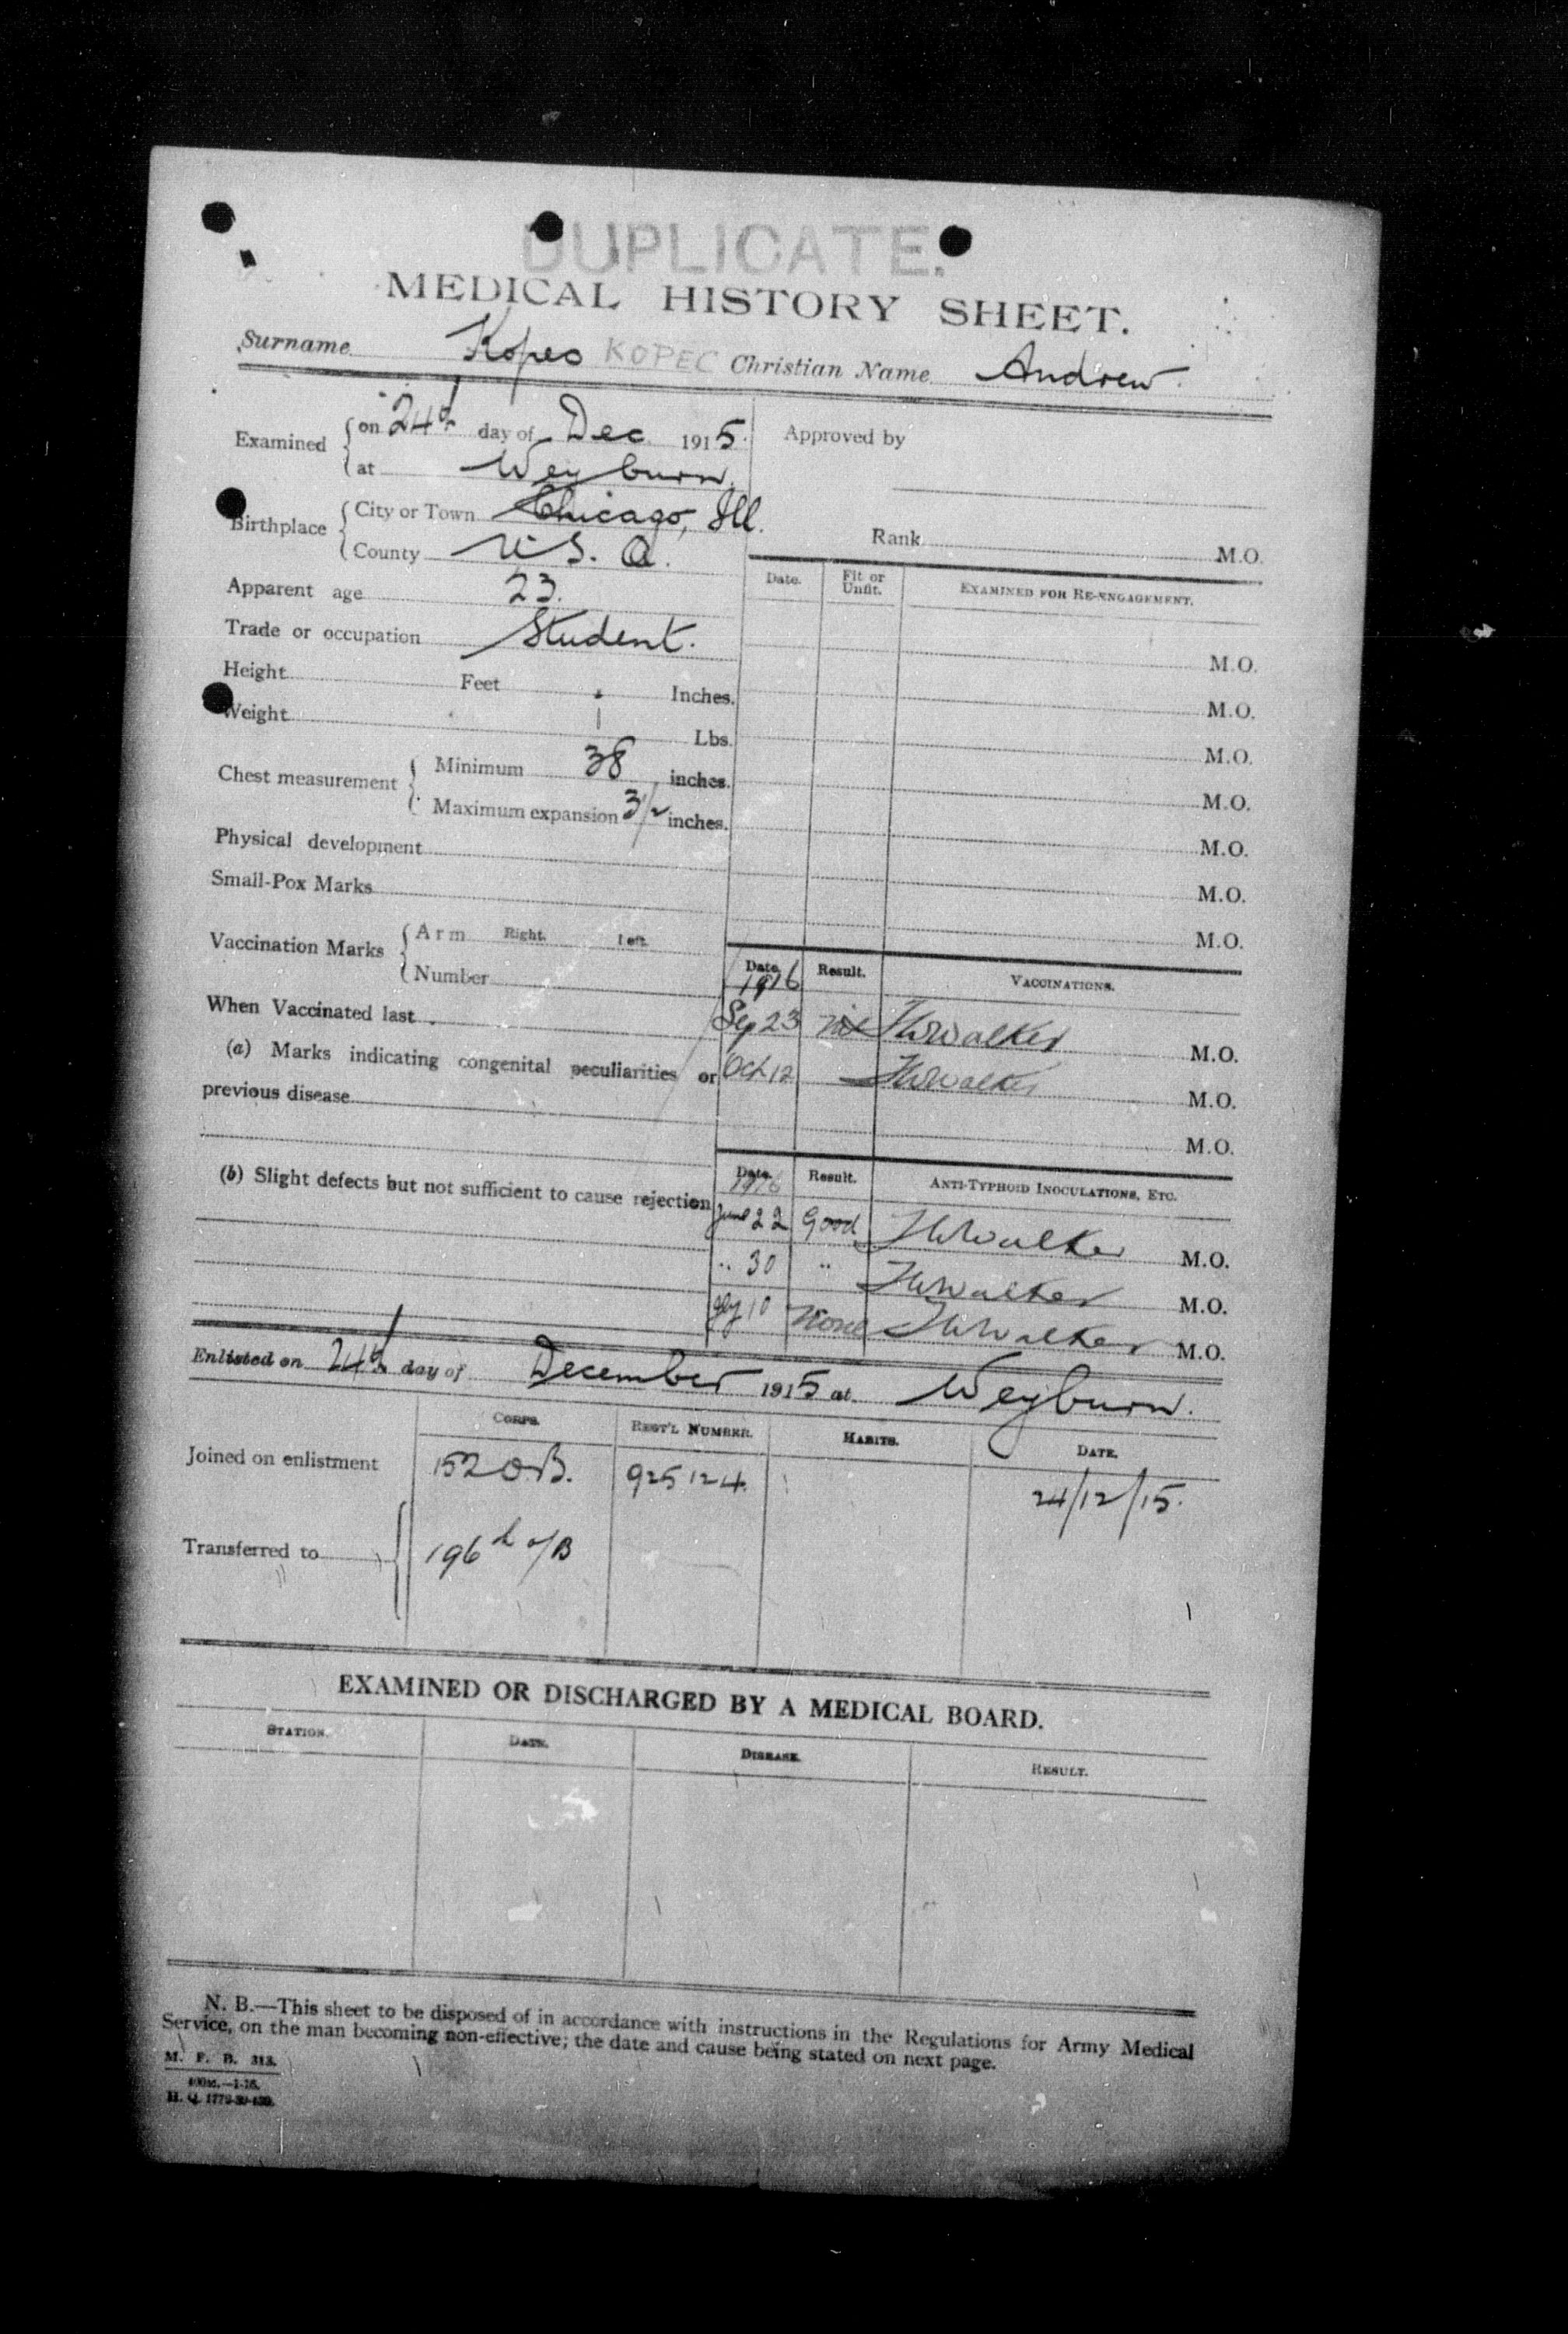 DUPLICATE.
MEDICAL HISTORY SHEET.
Surname Kopec KOPEC Christian Name Andrew.
Examined on 24th day of Dec 1915.
at Weyburn.
Approved by
Birthplace City or Town Chicago, Ill.
County U.S.A.
Rank M.O.
Apparent age 23.
Trade or occupation Student.
Height Feet Inches.
Weight Lbs.
Chest measurement Minimum 38 inches.
Maximum expansion 3 1/2 inches.
Physical development
Small-Pox Marks
Vaccination Marks Arm Right. Left.
Number
When Vaccinated last
(a) Marks indicating congenital peculiarities or
previous disease
(b) Slight defects but not sufficient to cause rejection
Date. Fit or Unfit. EXAMINED FOR RE-ENGAGEMENT.
M.O.
M.O.
M.O.
M.O.
M.O.
M.O.
M.O.
Date. Result. VACCINATIONS.
1916
Sep 23 nil Walker M.O.
Oct 12 Walker M.O.
M.O.
Date. Result. ANTI-TYPHOID INOCULATIONS, ETC.
1916
June 22 Good Walker M.O.
" 30 " Walker M.O.
10 None Walker M.O.
Enlisted on 24th day of December 1915 at Weyburn.
CORPS. REGT'L NUMBER. HABITS. DATE.
Joined on enlistment 152 O.B. 925124. 24/12/15.
Transferred to 196th o/B
EXAMINED OR DISCHARGED BY A MEDICAL BOARD.
STATION. DATE. DISEASE. RESULT.
N. B.—This sheet to be disposed of in accordance with instructions in the Regulations for Army Medical
Service, on the man becoming non-effective; the date and cause being stated on next page.
M. F. B. 313.
400M.—1-16.